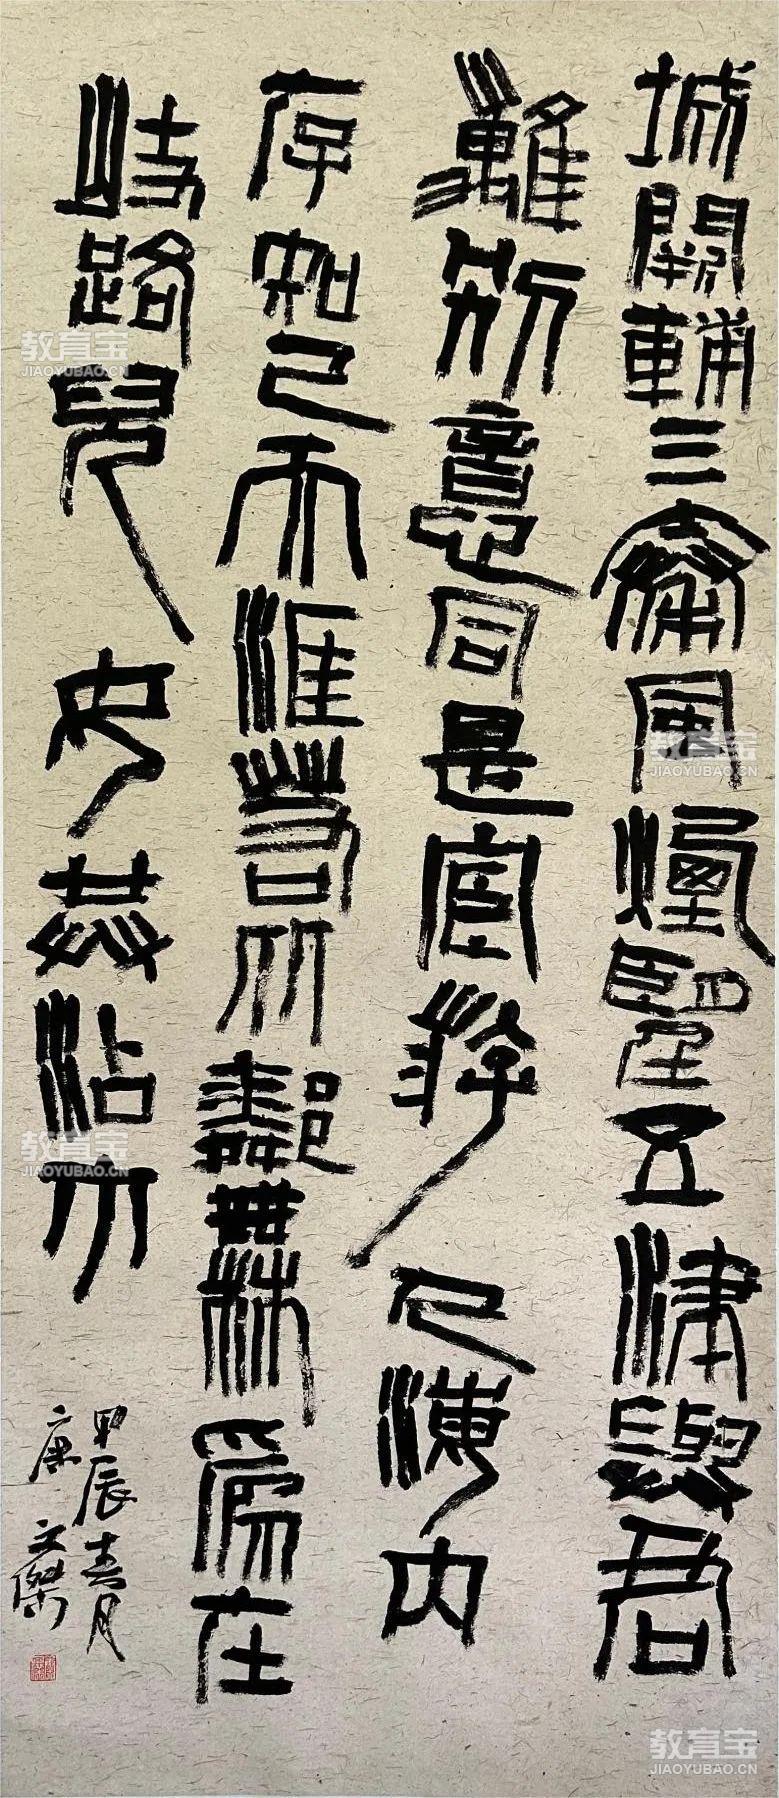 城闕輔三秦風煙望五津與君
離別意同是宦游人海内
存知己天涯若比鄰無為在
歧路兒女共沾巾
甲辰春月
康文傑
教育宝
JIAOYUBAO.CN
教育宝
JIAOYUBAO.CN
教育宝
JIAOYUBAO.CN
教育宝
JIAOYUBAO.CN